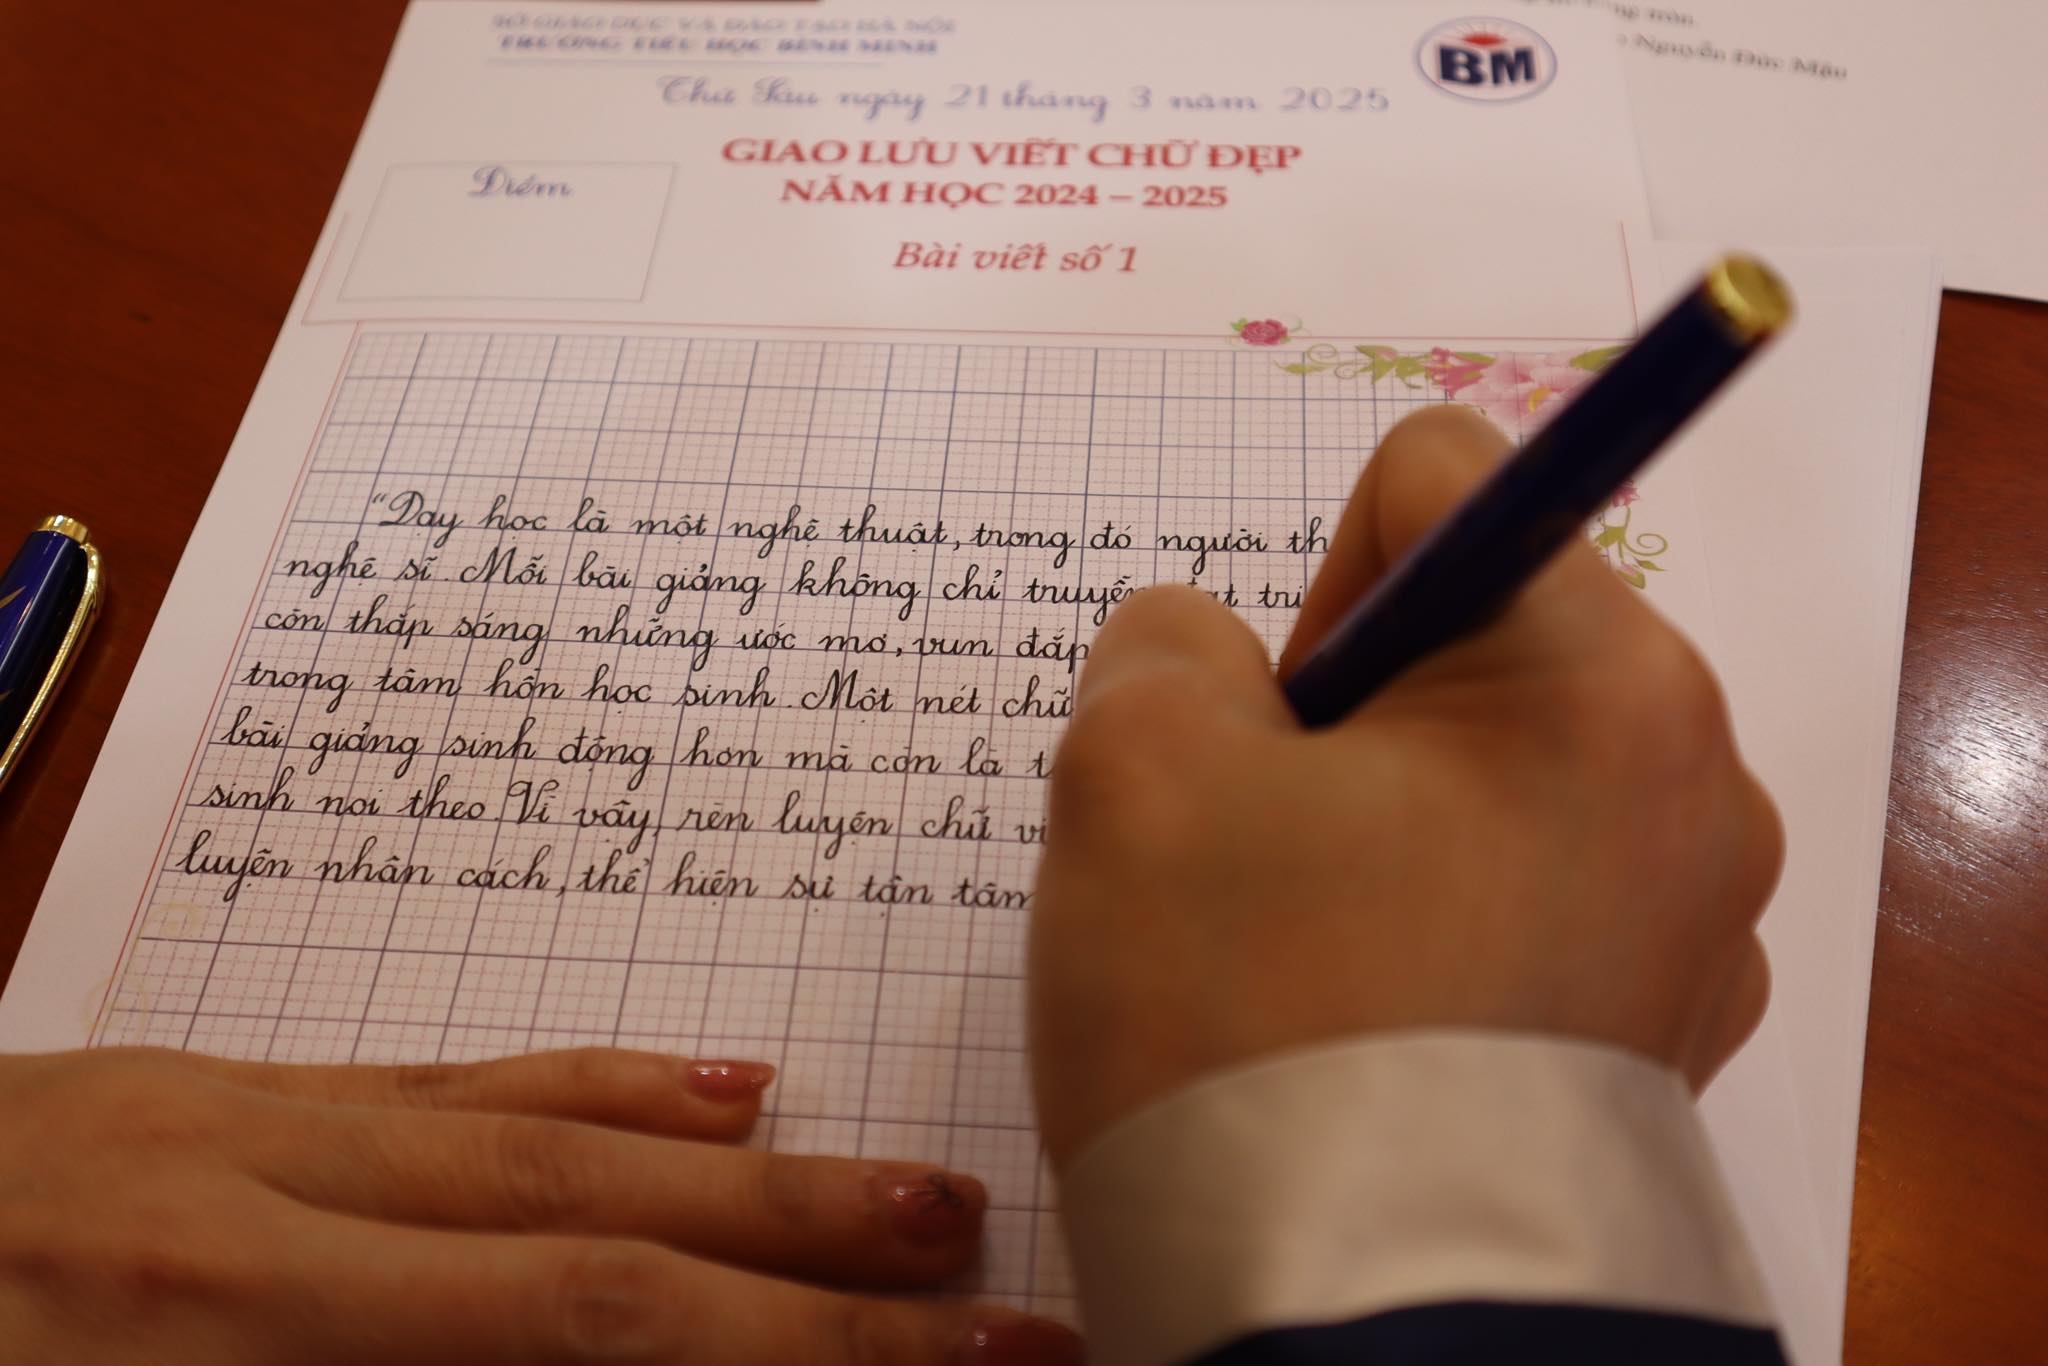 SỞ GIÁO DỤC VÀ ĐÀO TẠO HÀ NỘI
TRƯỜNG TIỂU HỌC BÌNH MINH
BM
Thứ Sáu ngày 21 tháng 3 năm 2025
GIAO LƯU VIẾT CHỮ ĐẸP
NĂM HỌC 2024 – 2025
Điểm
Bài viết số 1
Nguyễn Đức Mậu
“Dạy học là một nghệ thuật, trong đó người th
nghệ sĩ. Mỗi bài giảng không chỉ truyền đạt tri
còn thắp sáng những ước mơ, vun đắp
trong tâm hồn học sinh. Một nét chữ
bài giảng sinh động hơn mà còn là t
sinh noi theo. Vì vậy, rèn luyện chữ vi
luyện nhân cách, thể hiện sự tận tâm